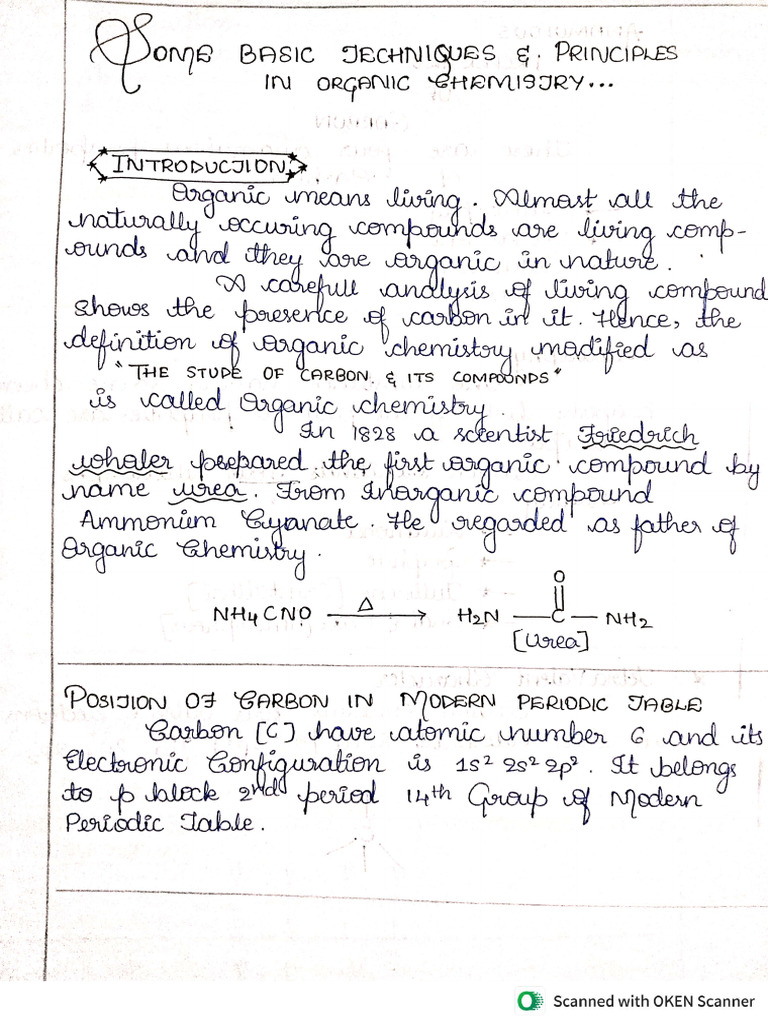 SOME BASIC TECHNIQUES & PRINCIPLES
IN ORGANIC CHEMISTRY...
INTRODUCTION
Organic means living. Almost all the
naturally occuring compounds are living comp-
ounds and they are organic in nature.
A carefull analysis of living compound
shows the presence of carbon in it. Hence, the
definition of organic chemistry modified as
"THE STUDE OF CARBON & ITS COMPOUNDS"
is called Organic chemistry
In 1828 a scientist Friedrich
whaler prepared the first organic compound by
name urea. From Inorganic compound
Ammonium Cyanate. He regarded as father of
Organic Chemistry.
O
NH4CNO Δ → H2N — C — NH2
[Urea]
POSITION OF CARBON IN MODERN PERIODIC TABLE
Carbon [C] have atomic number 6 and its
Electronic Configuration is 1s² 2s² 2p². It belongs
to p block 2nd period 14th Group of Modern
Periodic Table.
Scanned with OKEN Scanner